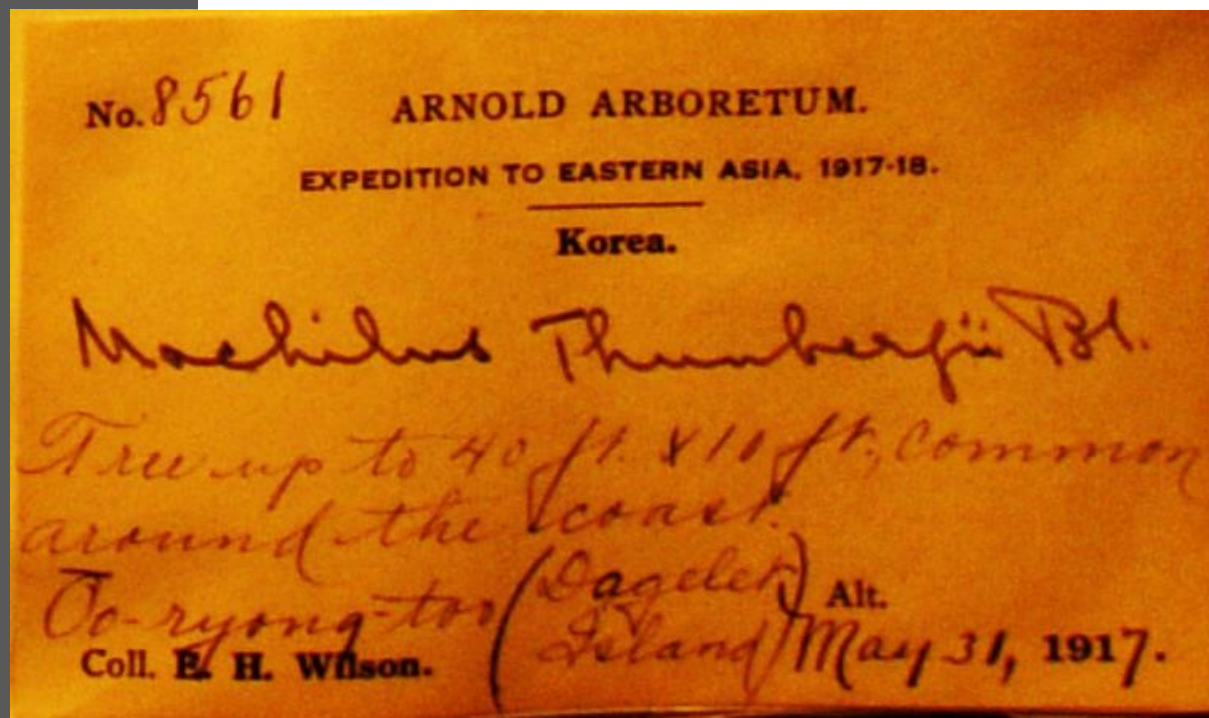 No. 8561 ARNOLD ARBORETUM.
EXPEDITION TO EASTERN ASIA, 1917-18.
Korea.
Machilus Thunbergii Bl.
Tree up to 40 ft. x 10 ft., common
around the coast.
Oo-ryong-too (Dagelet Island) Alt.
Coll. E. H. Wilson. May 31, 1917.